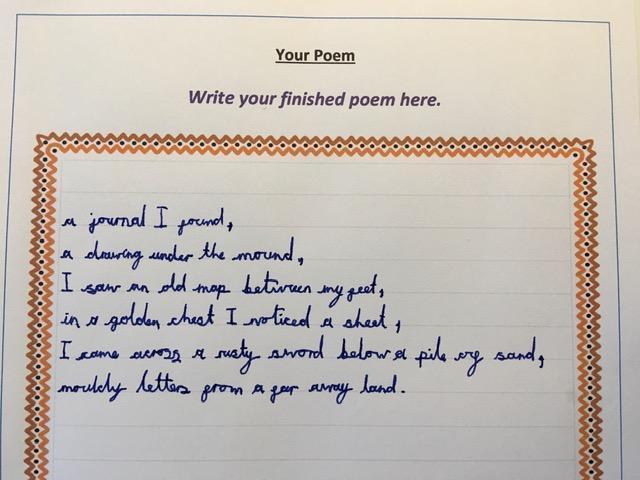 Your Poem
Write your finished poem here.
a journal I found,
a drawing under the mound,
I saw an old map between my feet,
in a golden chest I noticed a sheet,
I came across a rusty sword below a pile of sand,
mouldy letters from a far away land.